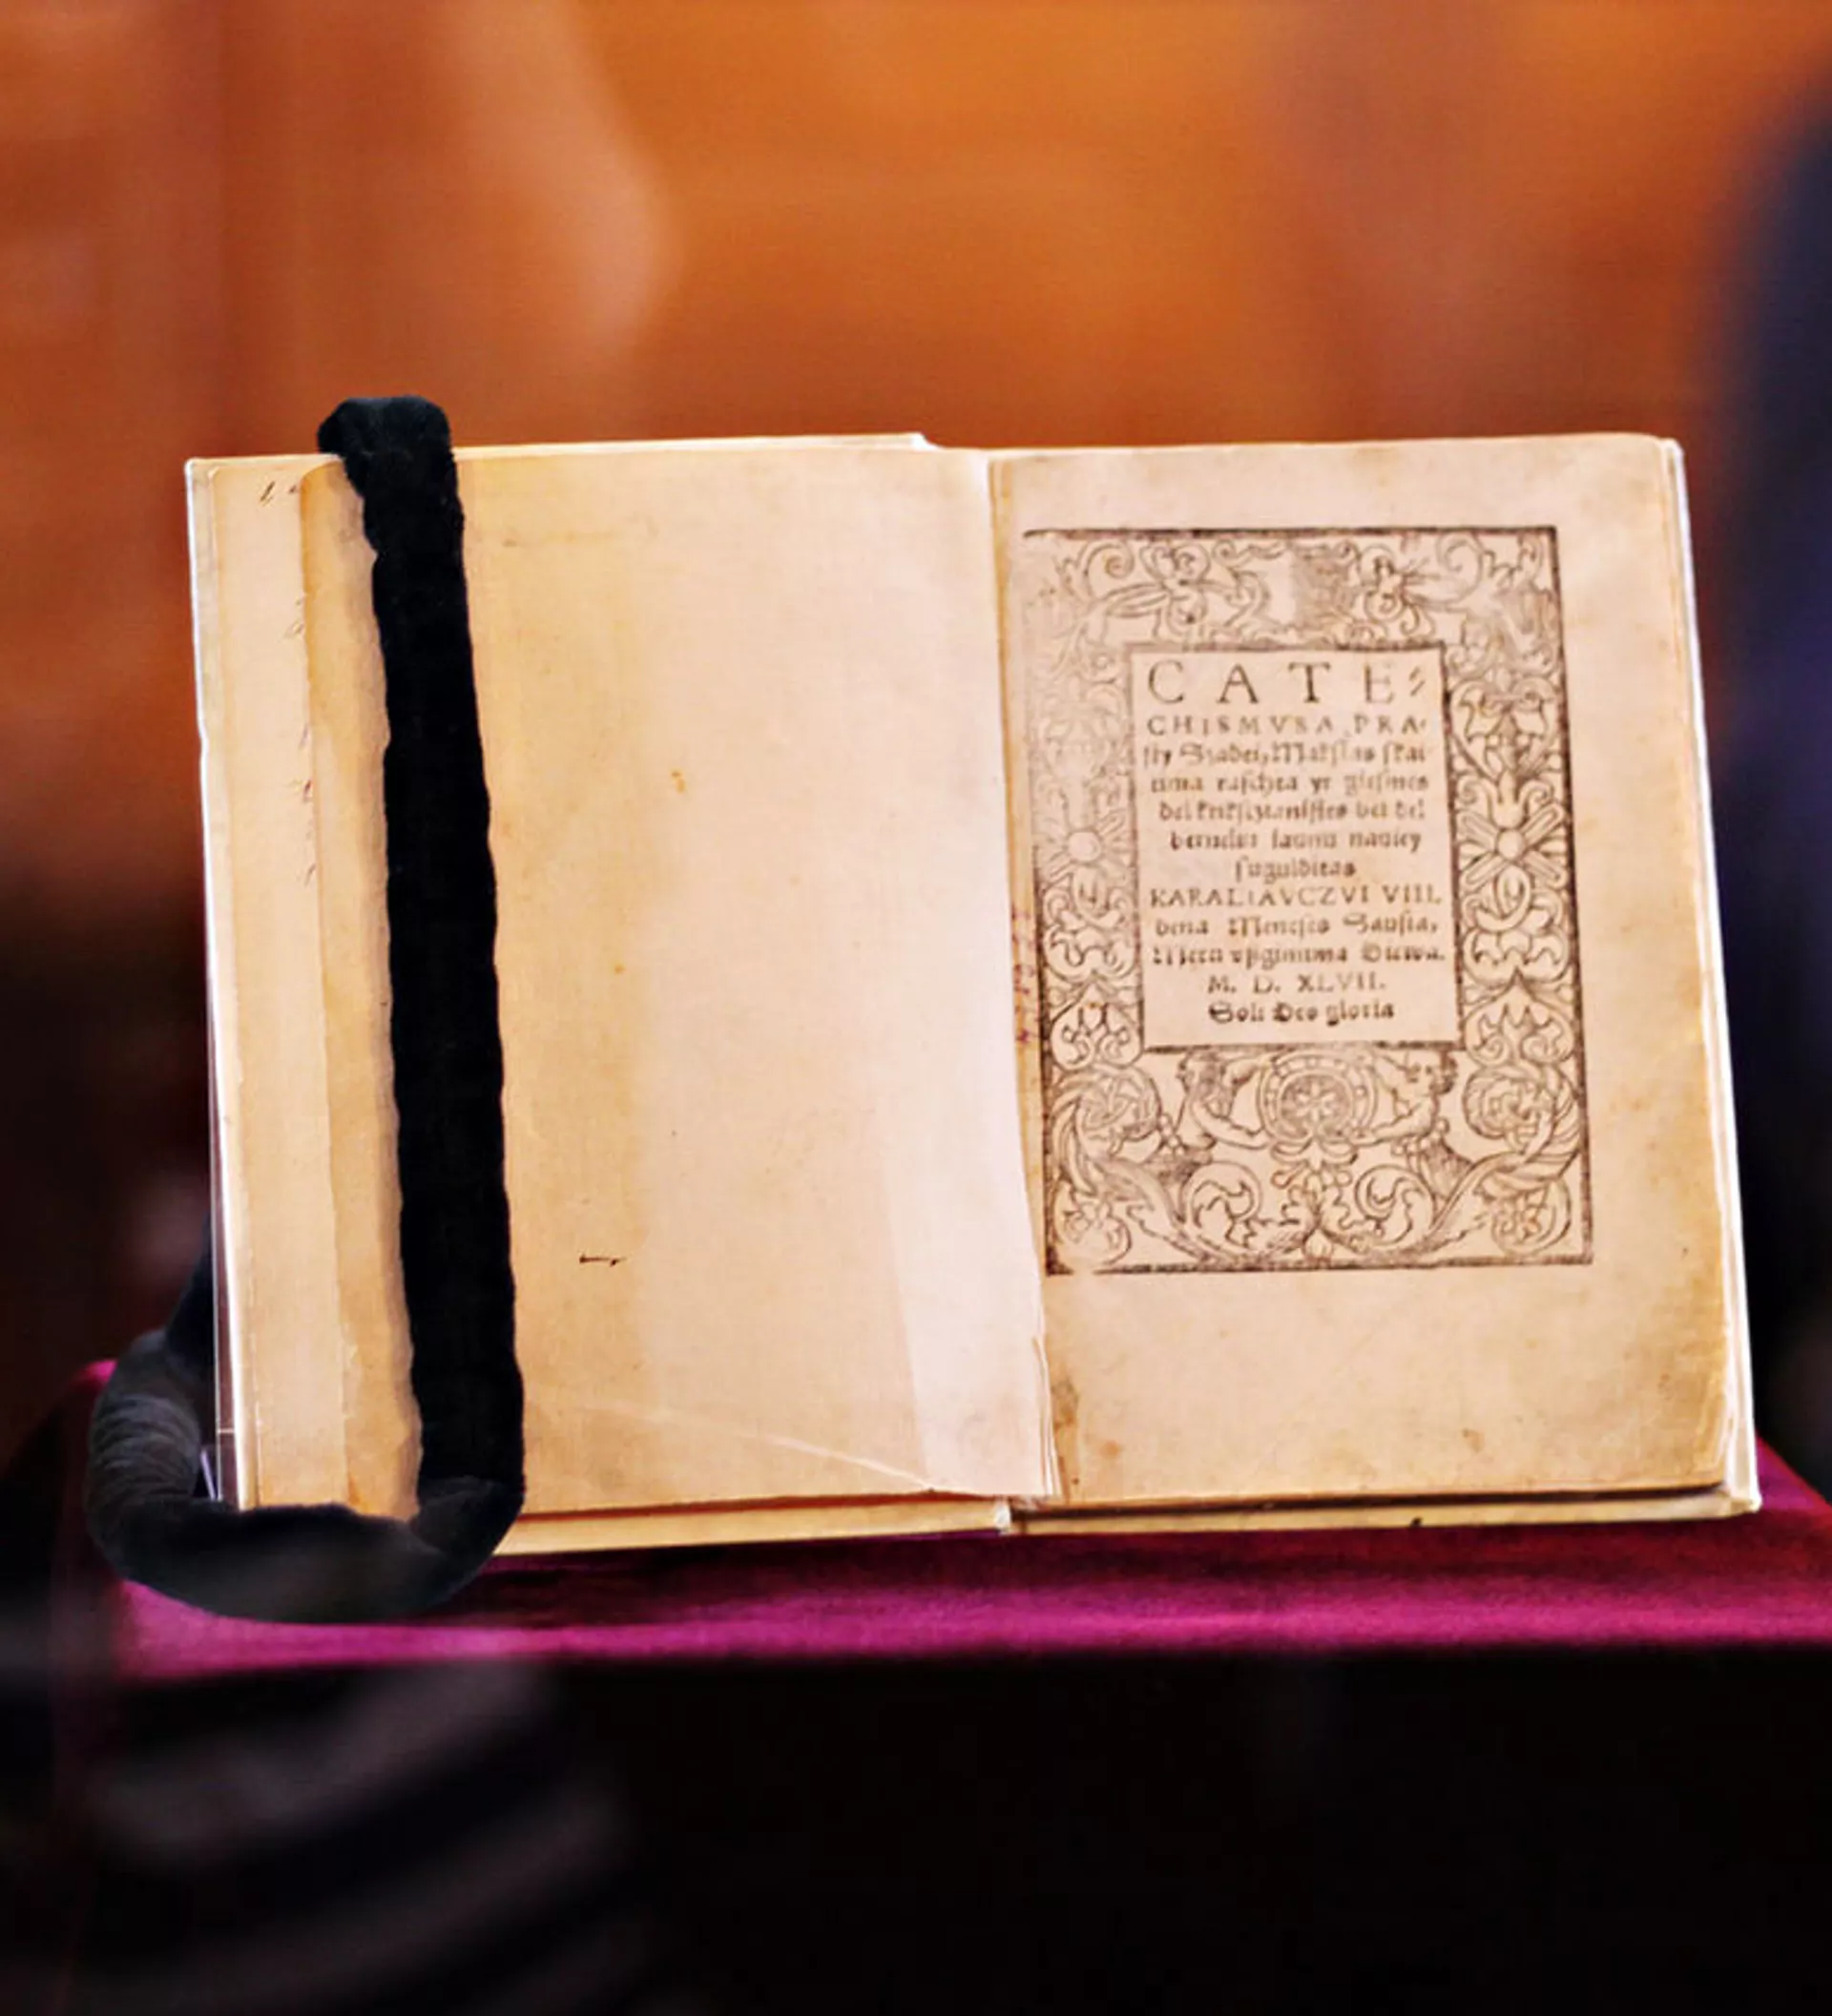 CATE⸗
CHISMVSA PRA⸗
sty Szadei, Makslas skai
tima raschta yr giesmes
del kriksczianistes bei del
berneliu iaunu nauiey
sugulditas
KARALIAVCZVI VIII.
dena Meneses Sausia,
Metu vszgimima Diewa.
M. D. XLVII.
Soli Deo gloria